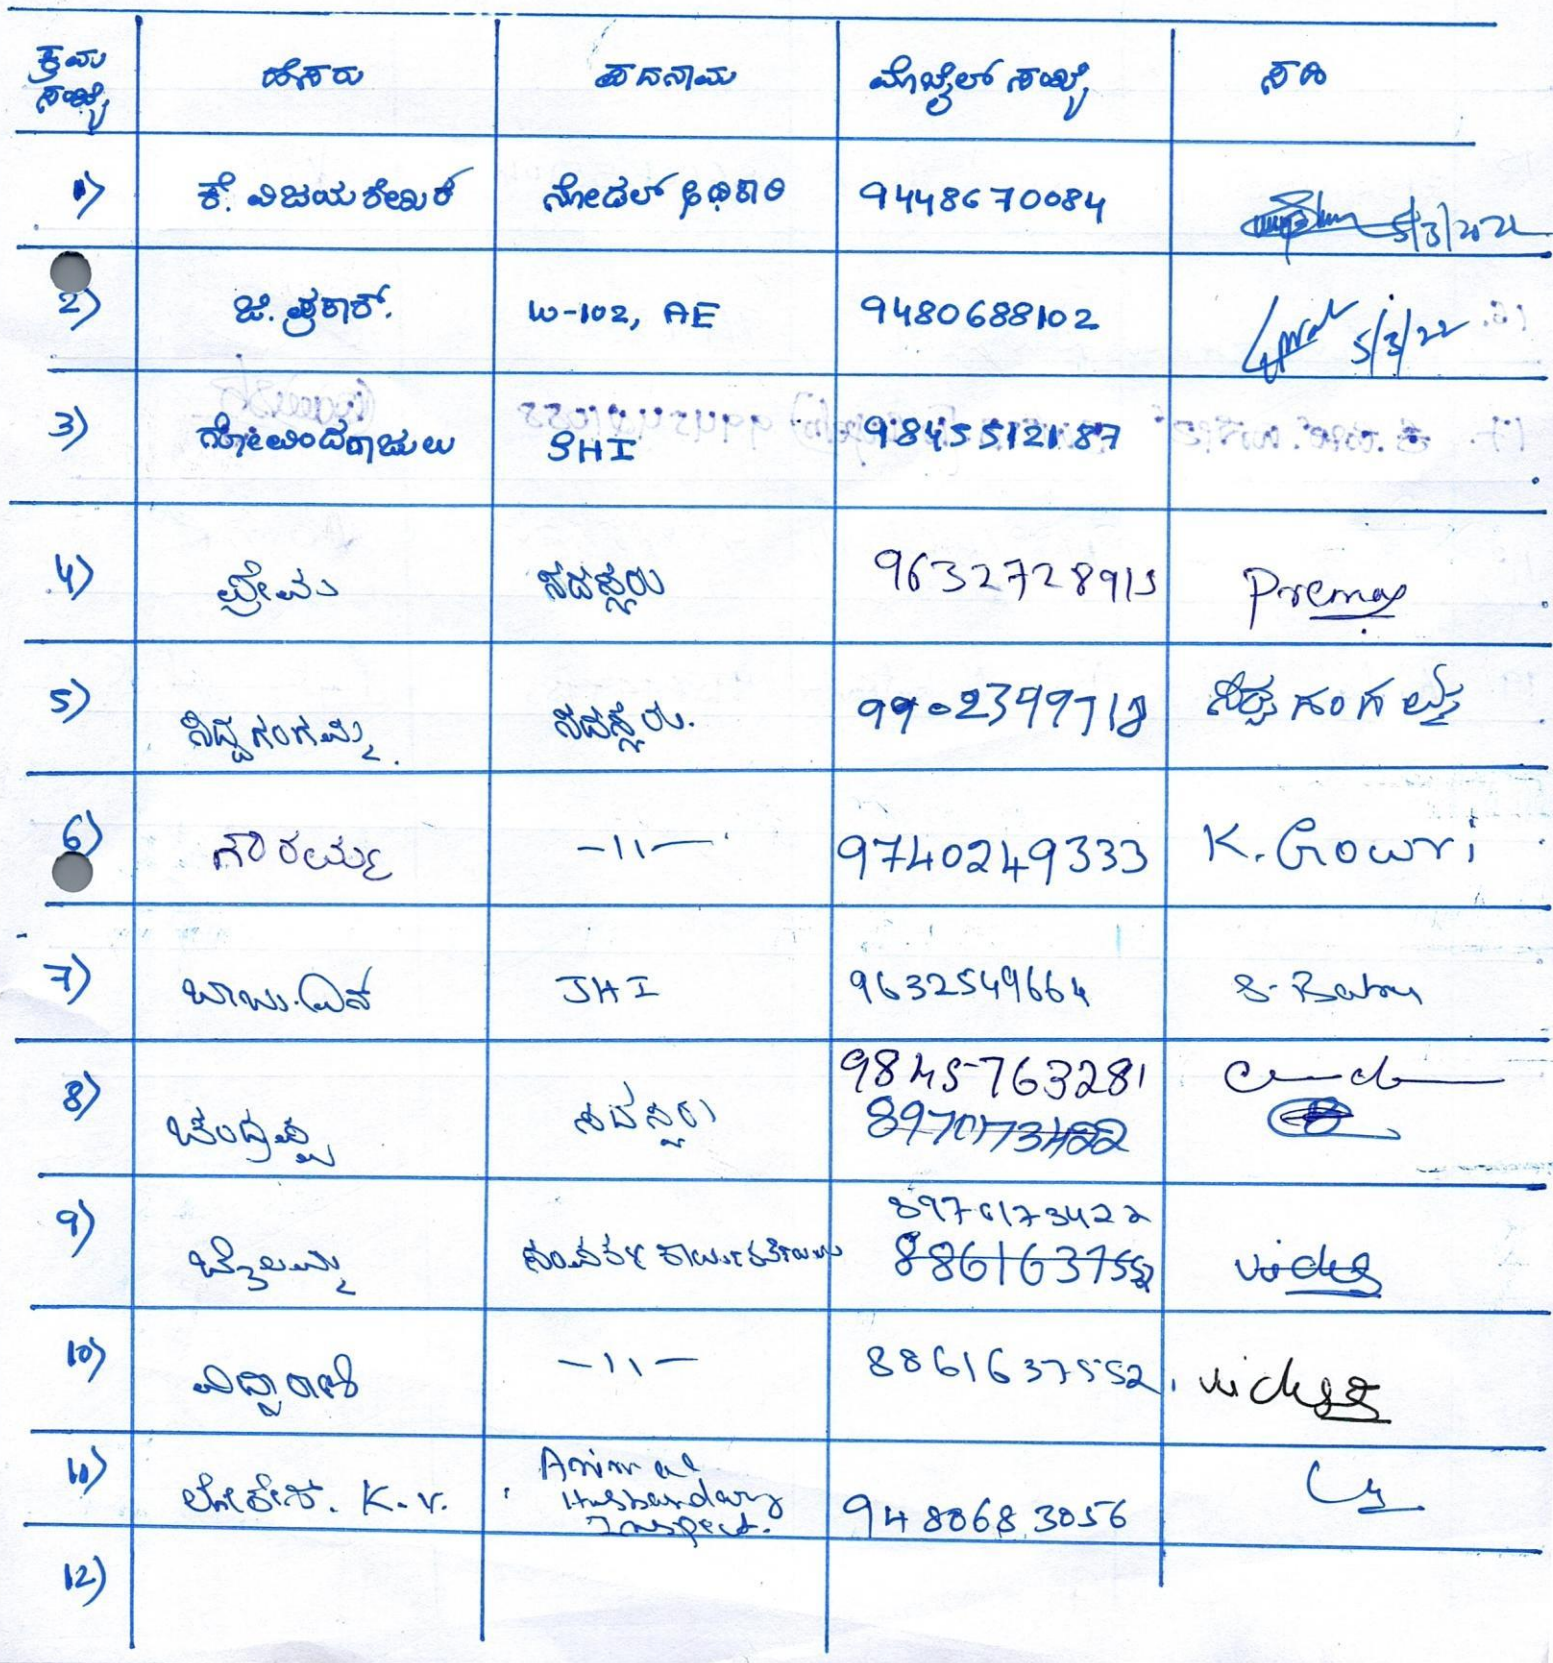 ಕ್ರಮ ಸಂಖ್ಯೆ ಹೆಸರು ಪದನಾಮ ಮೊಬೈಲ್ ಸಂಖ್ಯೆ ಸಹಿ
1) ಕೆ. ವಿಜಯಶೇಖರ್ ನೋಡಲ್ ಅಧಿಕಾರಿ 9448670084 5/3/2022
2) ಜಿ. ಪ್ರಕಾಶ್. W-102, AE 9480688102 5/3/22
3) ಗೋವಿಂದರಾಜುಲು SHI 9845512187
4) ಪ್ರೇಮ ಸದಸ್ಯರು 9632728915 Prema
5) ಸಿದ್ದಗಂಗಮ್ಮ. ಸದಸ್ಯರು. ಸಿದ್ದಗಂಗಮ್ಮ
6) ಗೌರಮ್ಮ -11- 9740249333 K. Gowri
7) ಬಾಬು.ಎಸ್ JHI 9632549664 S. Babu
8) ಚಂದ್ರಪ್ಪ ಸದಸ್ಯರು 9845763281
8970173422
9) ಚೈಲಮ್ಮ 8970173422
8861637552
10) ವಿದ್ಯಾರಾಣಿ -11- 8861637552.
11) ಲೋಕೇಶ್. K.V. Animal
Husbandary
Inspect. 9480683056
12)